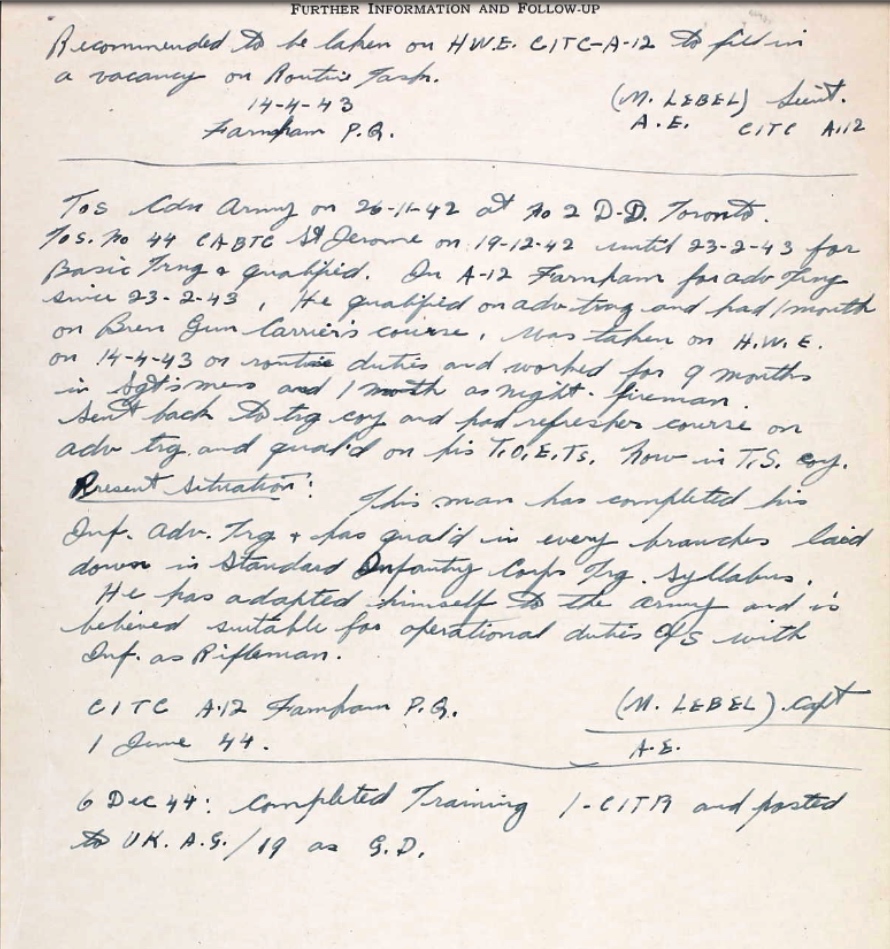 FURTHER INFORMATION AND FOLLOW-UP
Recommended to be taken on H.W.E. CITC-A-12 to fill in
a vacancy on Routine Task.
14-4-43
(M. LEBEL) Lieut.
Farnham P.Q.
A.E. CITC A.12
TOS Cdn Army on 26-11-42 at No 2 D.D. Toronto.
TOS. No 44 CABTC St Jerome on 19-12-42 until 23-2-43 for
Basic Trng & qualified. On A-12 Farnham for adv Trng
since 23-2-43, He qualified on adv trng and had 1 month
on Bren Gun Carrier's course, was taken on H.W.E.
on 14-4-43 on routine duties and worked for 9 months
in Sgt's mess and 1 month as night-fireman.
Sent back to trg coy and had refresher course on
adv trg. and qual'd on his T.O.E.Ts. Now in T.S. coy.
Present Situation: This man has completed his
Inf. Adv. Trg + has qual'd in every branches laid
down in Standard Infantry Corps Trg. Syllabus.
He has adapted himself to the army and is
believed suitable for operational duties O/S with
Inf. as Rifleman.
CITC A.12 Farnham P.Q. (M. LEBEL) Capt
1 June 44. A.E.
6 Dec 44: Completed Training 1-CITR and posted
to UK. A.G./19 as G.D.